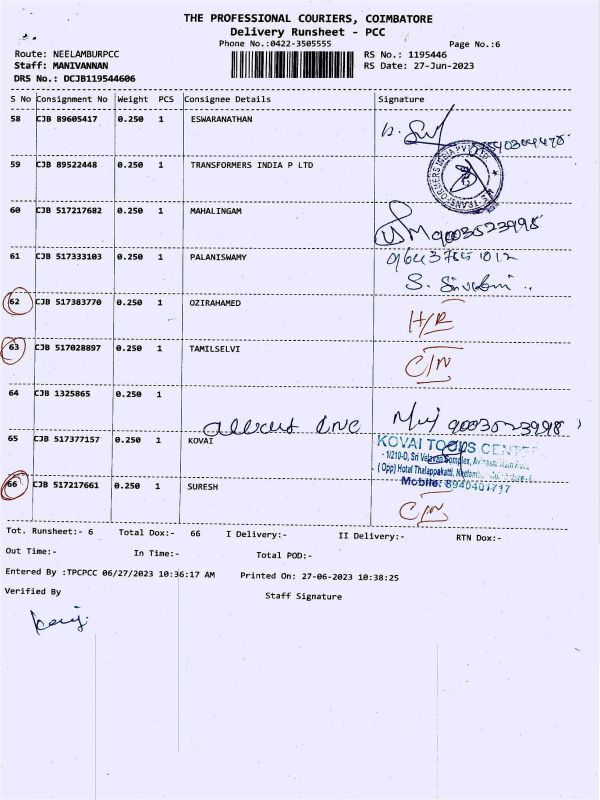 THE PROFESSIONAL COURIERS, COIMBATORE
Delivery Runsheet - PCC
Phone No.:0422-3505555
Page No.:6
Route: NEELAMBURPCC
RS No.: 1195446
Staff: MANIVANNAN
RS Date: 27-Jun-2023
DRS No.: DCJB119544606
S No Consignment No Weight PCS Consignee Details Signature
58 CJB 89605417 0.250 1 ESWARANATHAN
59 CJB 89522448 0.250 1 TRANSFORMERS INDIA P LTD
60 CJB 517217682 0.250 1 MAHALINGAM
9003523998
61 CJB 517333103 0.250 1 PALANISWAMY
62 CJB 517383770 0.250 1 OZIRAHAMED
H/R
63 CJB 517028897 0.250 1 TAMILSELVI
C/N
64 CJB 1325865 0.250 1
9003523998
65 CJB 517377157 0.250 1 KOVAI
KOVAI TOOLS
(Opp) Hotel Thalappakatti,
Mobile: 8940401717
66 CJB 517217661 0.250 1 SURESH
C/N
Tot. Runsheet:- 6 Total Dox:- 66 I Delivery:- II Delivery:- RTN Dox:-
Out Time:- In Time:- Total POD:-
Entered By :TPCPCC 06/27/2023 10:36:17 AM Printed On: 27-06-2023 10:38:25
Verified By
Staff Signature